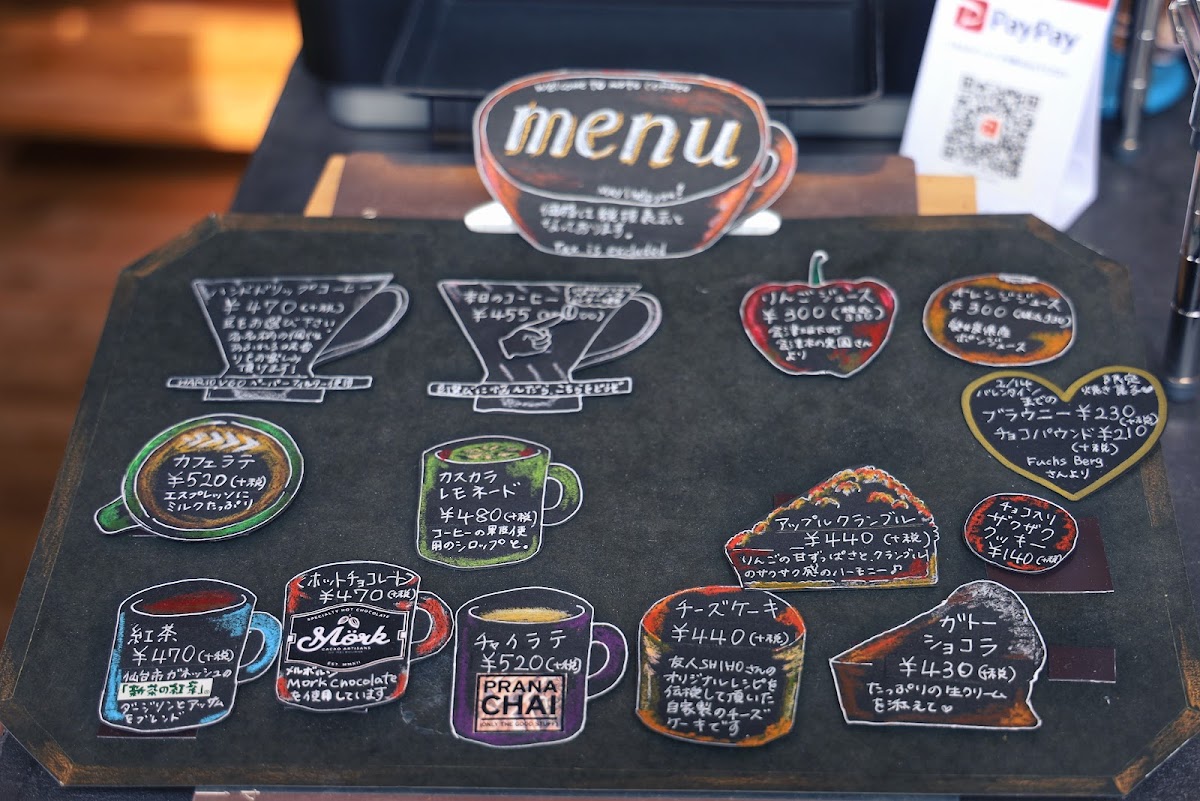 PayPay
menu
価格は税抜表示と
なっております。
Tax is excluded
ハンドドリップコーヒー
¥470(+税)
豆をお選び下さい
頂けます!
HARIO V60 ペーパーフィルター使用
本日のコーヒー
¥455
お選びに悩んだら、こちらをどうぞ
りんごジュース
¥300
会津坂下町
会津木の実園さん
より
オレンジジュース
¥300
愛媛県産
ポンジュース
2/14
バレンタイン
までの
限定
焼き菓子
ブラウニー ¥230
(+税)
チョコパウンド ¥210
(+税)
Fuchs Berg
さんより
カフェラテ
¥520(+税)
エスプレッソに
ミルクたっぷり
カスカラ
レモネード
¥480(+税)
コーヒーの果皮使
用のシロップと。
アップルクランブル
¥440(+税)
りんごの甘ずっぱさと、クランブル
のサクサク感のハーモニー♪
チョコ入り
ザクザク
クッキー
¥140(+税)
紅茶
¥470(+税)
仙台市ガネッシュの
「新茶の紅茶」。
ダージリンとアッサム
をブレンド
ホットチョコレート
¥470(+税)
SPECIALTY HOT CHOCOLATE
Mörk
CACAO ARTISANS
EST. MMXII
メルボルン
Mork Chocolate
を使用しています
チャイラテ
¥520(+税)
PRANA
CHAI
(ONLY THE GOOD STUFF)
チーズケーキ
¥440(+税)
友人SHIHOさんの
オリジナルレシピを
伝授して頂いた
自家製のチーズ
ケーキです
ガトー
ショコラ
¥430(+税)
たっぷりの生クリーム
を添えて